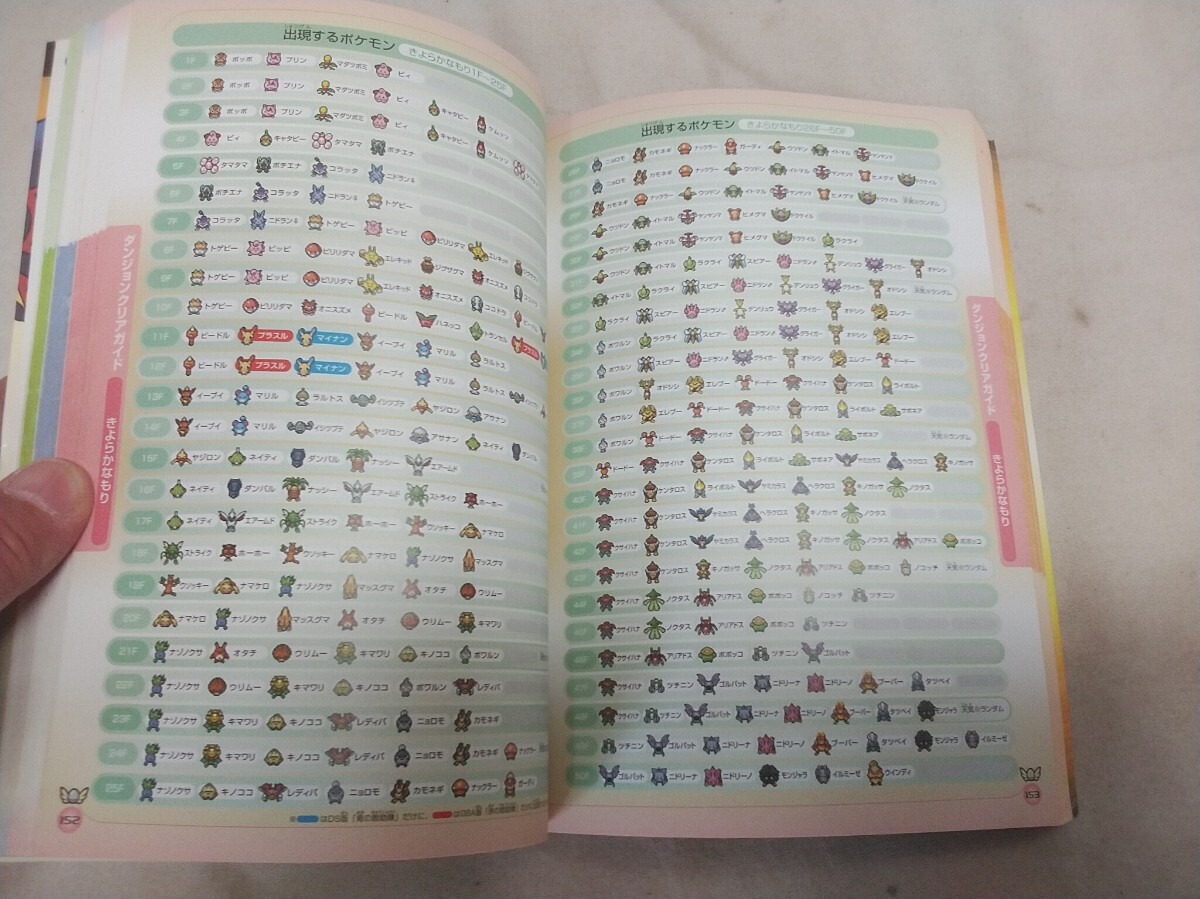 出現するポケモン きよらかなもり1F~25F
1F ポッポ プリン マダツボミ ピィ
2F ポッポ プリン マダツボミ ピィ キャタピー ケムッソ
3F ポッポ プリン マダツボミ ピィ キャタピー ケムッソ
4F ピィ キャタピー タマタマ ポチエナ
5F タマタマ ポチエナ コラッタ ニドラン♂
6F ポチエナ コラッタ ニドラン♂ トゲピー
7F コラッタ ニドラン♂ トゲピー ピッピ
8F トゲピー ピッピ ビリリダマ エレキッド ジグザグマ
9F トゲピー ピッピ ビリリダマ エレキッド オニスズメ
10F トゲピー ビリリダマ オニスズメ ビードル ハネッコ トランセル
11F ビードル プラスル マイナン イーブイ マリル ラルトス
12F ビードル プラスル マイナン イーブイ マリル ラルトス
13F イーブイ マリル ラルトス イシツブテ ヤジロン アサナン
14F イーブイ マリル イシツブテ ヤジロン アサナン ネイティ ダンバル
15F ヤジロン ネイティ ダンバル ナッシー エアームド
16F ネイティ ダンバル ナッシー エアームド ストライク ホーホー
17F ネイティ エアームド ストライク ホーホー ウソッキー ナマケロ
18F ストライク ホーホー ウソッキー ナマケロ ナゾノクサ マッスグマ
19F ウソッキー ナマケロ ナゾノクサ マッスグマ オタチ ウリムー
20F ナマケロ ナゾノクサ マッスグマ オタチ ウリムー キマワリ
21F ナゾノクサ オタチ ウリムー キマワリ キノココ ポワルン
22F ナゾノクサ ウリムー キマワリ キノココ ポワルン レディバ
23F ナゾノクサ キマワリ キノココ レディバ ニョロモ カモネギ
24F ナゾノクサ キマワリ キノココ レディバ ニョロモ カモネギ ナックラー
25F ナゾノクサ キノココ レディバ ニョロモ カモネギ ナックラー ガーディ
はDS版「青の救助隊」だけに、
ダンジョンクリアガイド
きよらかなもり
152
出現するポケモン きよらかなもり26F~50F
ニョロモ カモネギ ナックラー ガーディ ウツドン イトマル ヤンヤンマ
ニョロモ カモネギ ナックラー ウツドン イトマル ヤンヤンマ ヒメグマ ホウケイル
カモネギ ナックラー ウツドン イトマル ヤンヤンマ ヒメグマ 天気※ランダム
ウツドン イトマル ヤンヤンマ ヒメグマ
ウツドン イトマル ヤンヤンマ ヒメグマ ラクライ
ウツドン イトマル ラクライ スピアー ニドラン♀ デンリュウ グライガー オドシシ
イトマル ラクライ スピアー ニドラン♀ デンリュウ グライガー オドシシ 天気※ランダム
ラクライ スピアー ニドラン♀ デンリュウ グライガー オドシシ エレブー
ポワルン ラクライ スピアー ニドラン♀ グライガー オドシシ エレブー
ポワルン スピアー ニドラン♀ グライガー オドシシ エレブー ドードー
ポワルン オドシシ エレブー ドードー クサイハナ ケンタロス ライボルト
ポワルン エレブー ドードー クサイハナ ケンタロス ライボルト サボネア
ポワルン ドードー クサイハナ ケンタロス ライボルト サボネア 天気※ランダム
ドードー クサイハナ ケンタロス ライボルト サボネア ヤミカラス ヘラクロス キノガッサ
40F クサイハナ ケンタロス ライボルト ヤミカラス ヘラクロス キノガッサ ノクタス
41F クサイハナ ケンタロス ヤミカラス ヘラクロス キノガッサ ノクタス
42F クサイハナ ケンタロス ヤミカラス ヘラクロス キノガッサ ノクタス アリアドス ポポッコ
43F クサイハナ ケンタロス キノガッサ ノクタス アリアドス ポポッコ ノコッチ 天気※ランダム
44F クサイハナ ノクタス アリアドス ポポッコ ノコッチ ツチニン
クサイハナ ノクタス アリアドス ポポッコ ツチニン
クサイハナ アリアドス ポポッコ ツチニン ゴルバット
クサイハナ ツチニン ゴルバット ニドリーナ ニドリーノ ブーバー タツベイ
クサイハナ ツチニン ゴルバット ニドリーナ ニドリーノ ブーバー タツベイ モンジャラ 天気※ランダム
ツチニン ゴルバット ニドリーナ ニドリーノ ブーバー タツベイ モンジャラ イルミーゼ
50F ゴルバット ニドリーナ ニドリーノ モンジャラ イルミーゼ ウインディ
ダンジョンクリアガイド
きよらかなもり
153